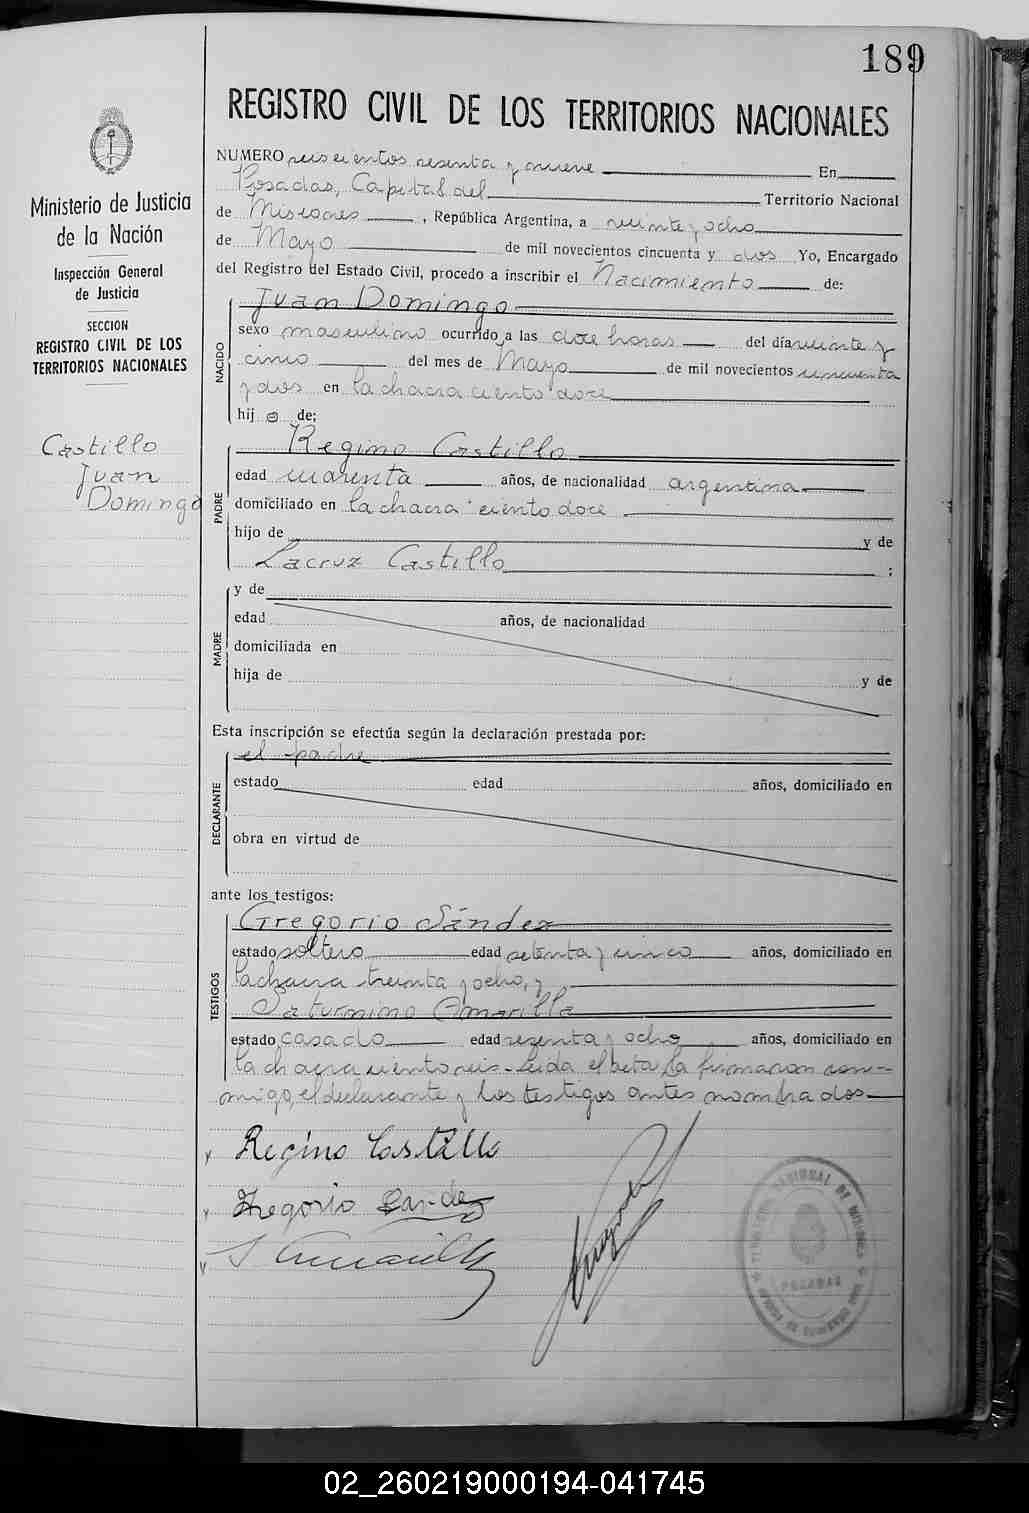 189
REGISTRO CIVIL DE LOS TERRITORIOS NACIONALES
Ministerio de Justicia
de la Nación
Inspección General
de Justicia
SECCION
REGISTRO CIVIL DE LOS
TERRITORIOS NACIONALES
Castillo
Juan
Domingo
NUMERO seiscientos sesenta y nueve En
Posadas, Capital del Territorio Nacional
de Misiones, República Argentina, a veinte y ocho
de Mayo de mil novecientos cincuenta y dos Yo, Encargado
del Registro del Estado Civil, procedo a inscribir el Nacimiento de:
NACIDO
Juan Domingo
sexo masculino ocurrido a las doce horas del día veinte y
cinco del mes de Mayo de mil novecientos cincuenta
y dos en la chacra ciento doce
hij o de:
PADRE
Regino Castillo
edad cuarenta años, de nacionalidad argentina
domiciliado en la chacra ciento doce
hijo de y de
Lacruz Castillo ;
MADRE
y de
edad años, de nacionalidad
domiciliada en
hija de y de
Esta inscripción se efectúa según la declaración prestada por:
DECLARANTE
el padre
estado edad años, domiciliado en
obra en virtud de
ante los testigos:
TESTIGOS
Gregorio Sández
estado soltero edad setenta y cinco años, domiciliado en
la chacra treinta y ocho, y
Saturnino Amarilla
estado casado edad sesenta y ocho años, domiciliado en
la chacra ciento seis - Leída el acta, la firmaron con-
migo, el declarante y los testigos antes nombrados
Regino Castillo
Gregorio Sandez
S Amarilla
POSADAS
02_260219000194-041745